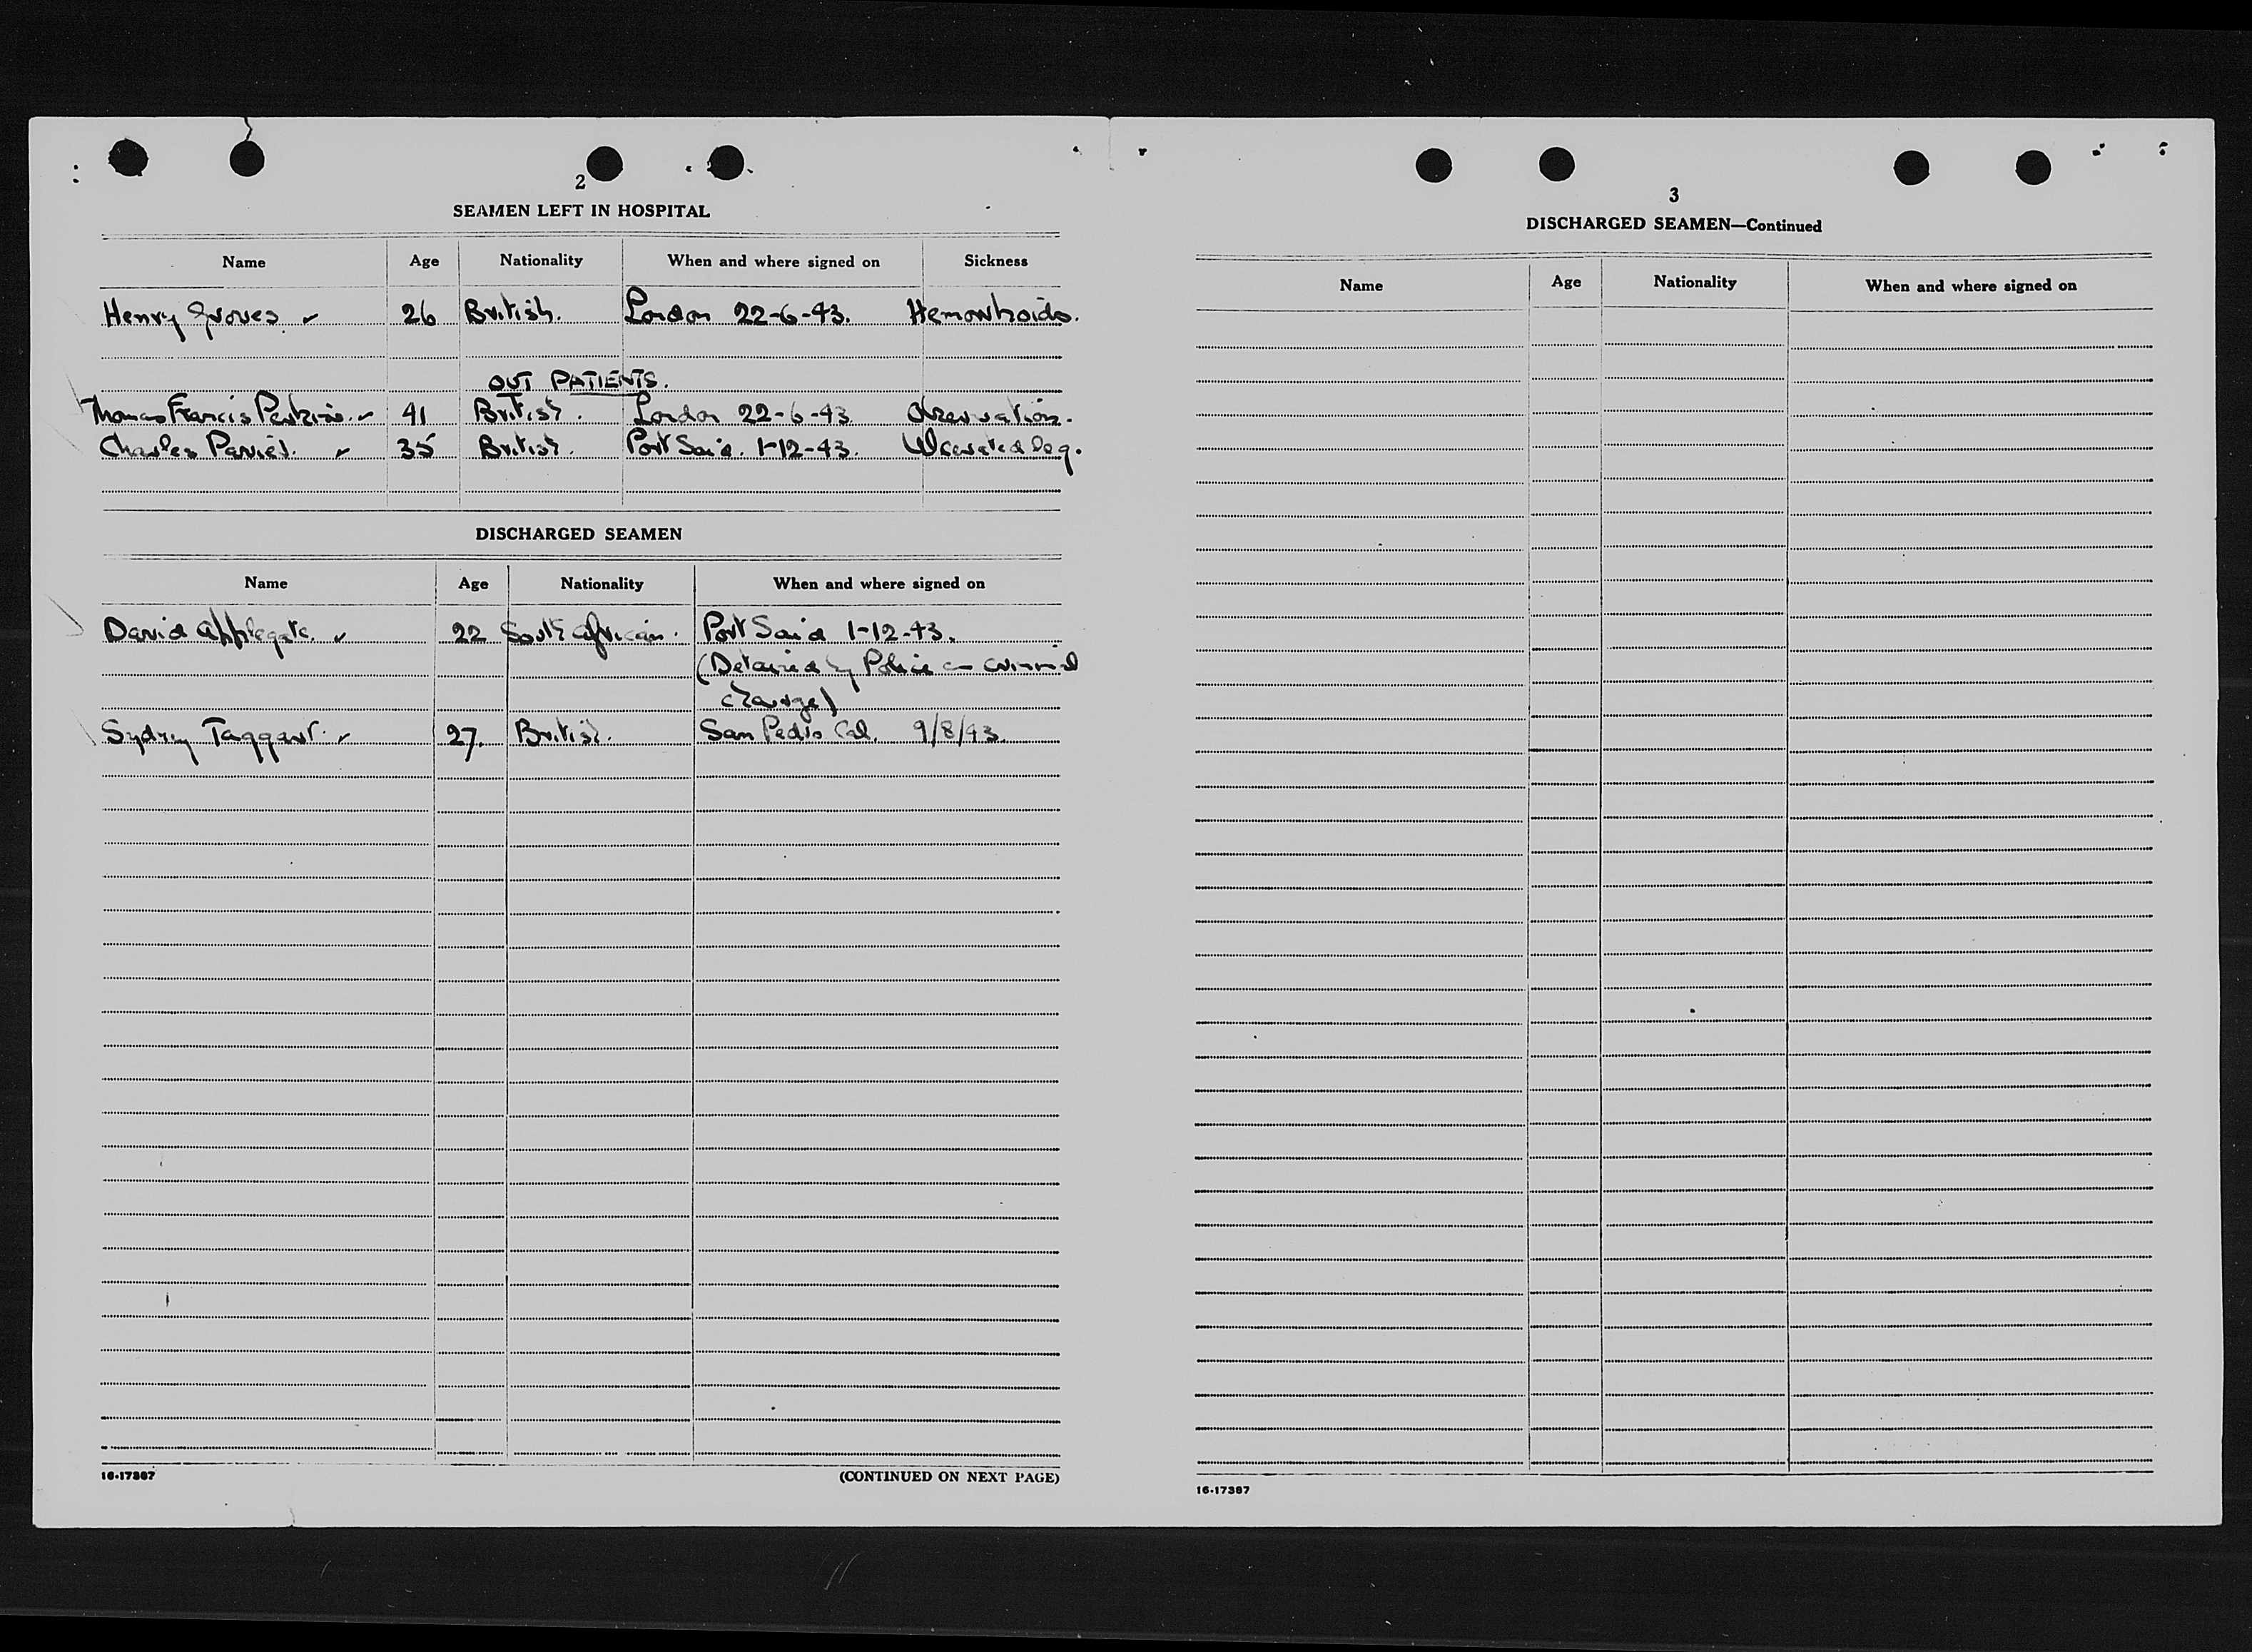 2
SEAMEN LEFT IN HOSPITAL
Name Age Nationality When and where signed on Sickness
Henry Groves ✓ 26 British. London 22-6-43. Hemorrhoids.
OUT PATIENTS.
Thomas Francis Perkins ✓ 41 British. London 22-6-43 Observation.
Charles ✓ 35 British. Port Said. 1-12-43. Ulcerated leg.
DISCHARGED SEAMEN
Name Age Nationality When and where signed on
David Applegate. ✓ 22 South African. Port Said 1-12-43.
(Detained by Police on criminal
charge)
Sydney Taggart. ✓ 27. British. San Pedro Cal. 9/8/43.
16-17387
(CONTINUED ON NEXT PAGE)
3
DISCHARGED SEAMEN—Continued
Name Age Nationality When and where signed on
16-17387